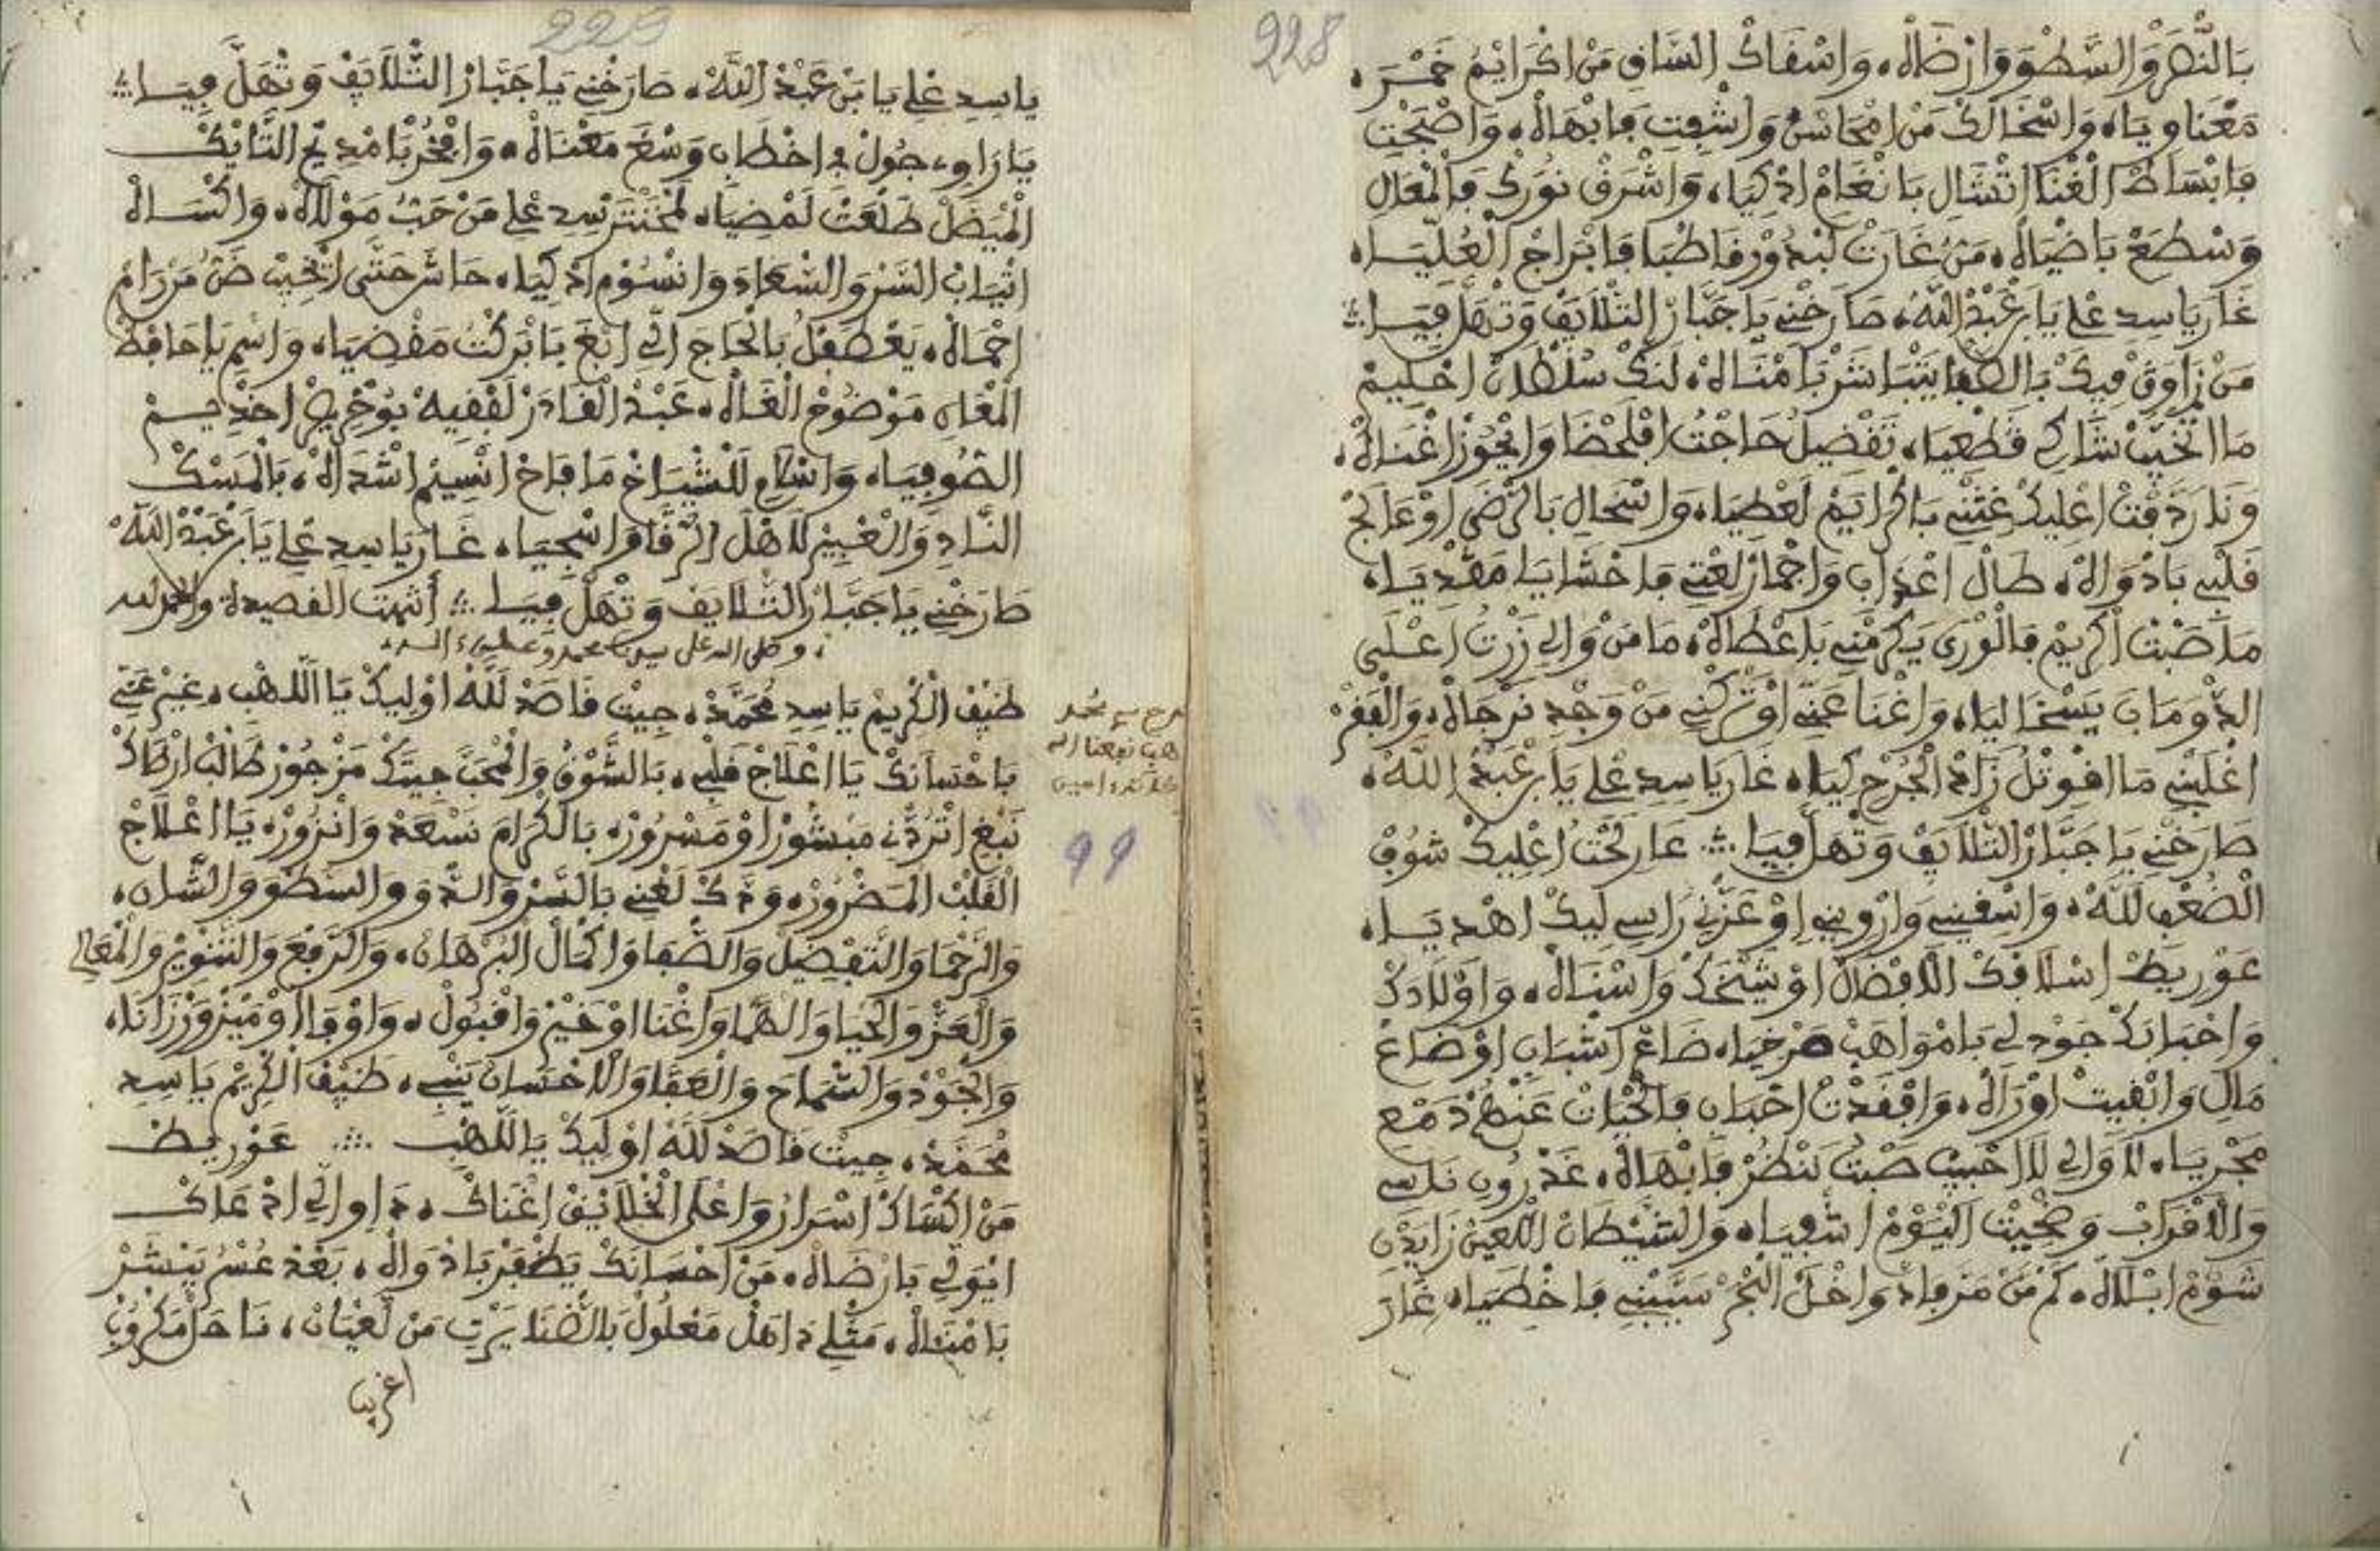 228
بَالنَّصْرْ وَالسَّطْوَ وَارْضَاهْ، وَاسْقَاكْ السَّاقِ مَنْ اكْرَايَمْ خَمْرَ،
مَعْنَاوِيَا، وَاسْخَالَكْ مَنْ امْحَاسْنُ وَاشْفِتِ فَابْهَاهْ، وَاصْبَحْتِ
فَابْسَاطْ الْغْنَا اتْسَالِ بَانْغَامْ ادْكِيَا، وَاشْرَقْ نُورَكْ فَالْمْعَالِ
وَسْطَعْ بَاضْيَاهْ، مَنُّ غَارَتْ لَبْدُورْ فَاطْبَا فَابْرَاجْ الْعُلْيَا،
غَارَ يَاسِيدِ عْلِي يَابَنْ عَبْدْ اللَّهْ، صَارَخْنِي يَاجَبَّارْ التّْلَايَفْ وَتْهَلَّ فِيَا ؞
مَنْ زَاوَقْ فِيكْ بَالصّْفَا يَتْبَاشَرْ بَامْنَاهْ، لَنَّكْ سُلْطَانْ احْلِيمْ
مَا اتْخَيَّبْ شَاكِي قَطْعِيَا، تَقْضِيلُ حَاجْتُ افْلَحْضَا وَايْجُوزْ اغْنَاهْ،
وَنَا رَدَّفْتْ اعْلِيكْ غِتْنِي بَاكْرَايَمْ لَعْطِيَا، وَاسْخَالِ بَالرّْضَى اوْعَالَجْ
قَلْبِي بَادْوَاهْ، طَالْ اعْذَابِ وَاجْمَارْ لَغْتِي فَاحْشَايَا مَقْدْيَا،
مَا صَبْتْ اكْرِيمْ فَالْوْرَى يَكْرَمْنِي بَاعْطَاهْ، مَا مَنْ وَالِي زَرْتُ اعْلَى
الدَّوْ مَابَ يَسْخَا لِيَا، وَاغْنَا عَنِّي اوْتَرَكْنِي مَنْ وَجْدِ نَرْجَاهْ، وَالْفَقْرْ
اغْلَبْنِي مَا اقْوِتْلُ زَادْ الْجُرْحْ كِيَا، غَارَ يَاسِيدِ عْلِي يَابَنْ عَبْدْ اللَّهْ،
صَارَخْنِي يَاجَبَّارْ التّْلَايَفْ وَتْهَلَّ فِيَا ؞ عَارْ لَحْتُ اعْلِيكْ شُوفْ
الْضُعْفِ لَلَّهْ، وَاسْقِينِي وَارْوِينِي اوْعَزْنِي رَاسِي لِيكْ اهْدِيَا،
عَوْرِيطْ اسْلَافَكْ الَافْضَالْ اوْشَيْخَكْ وَاسْنَاهْ، وَاوْلَادَكْ
وَاحْبَابَكْ جَوْدْ لِي بَامْوَاهَبْ مَرْخِيَا، ضَاعْ اشْبَابِ اوْضَاعْ
مَالِ وَابْقِيتْ اوْرَاهْ، وَافْقَدْتْ احْبَابِ فَالْحْيَاتْ عَنْهُمْ دَمْعِ
مَجْرِيَا، لَاوَالِي لَا احْبِيبْ صَبْتُ نَنْظُرْ فَابْهَاهْ، غَدْرُونِ نَاسِي
وَالَاقْرَابْ وَضْحِيتْ الْيُومْ اشْفِيَا، وَالشَّيْطَانْ اللّْعِينْ زَايَدْنِ
شُومْ ابْلَاهْ، كَمْ مَنْ مَرْفَادْ وَاحَلْ الْبْحَرْ سَيَّبْنِي فَاخْطِيَا، غَارَ
229
يَاسِيدِ عْلِي يَابَنْ عَبْدْ اللَّهْ، صَارَخْنِي يَاجَبَّارْ التّْلَايَفْ وَتْهَلَّ فِيَا ؞
يَارَاوِي، جُولْ فِي اخْطَابِ وَسْعَ مَعْنَاهْ، وَافْخَرْ بَامْدِيحْ التَّايَكْ
الْفَيْضَلْ طَلْعَتْ لَمْضِيَا، لَمْخَنْتَرْ سِيدِ عْلِي مَنْ حَبُّ مَوْلَاهْ، وَاكْسَاهْ
اثْيَابْ السَّرْ وَالسّْعَادَ وَانْسُومْ ادْكِيَا، حَاشَ حَتَّى اتْخَيَّبْ ضَنُّ مَنْ رَامْ
احْمَاهْ، يَعْطَفْلُ بَالْحَاجَ الِّي ابْغَ بَابْرَكْتُ مَقْضِيَا، وَاسْمِ يَاحَافَظْ
الْمْعَانِ مَوْضُوحْ الْغَاهْ، عَبْدْ الْقَادَرْ لَفْقِيهْ بُوخْرِيصْ اخْدِيمْ
الصُّوفِيَا، وَاسْلَامِ لَلْشّْيَاخْ مَا فَاحْ انْسِيمْ اشْدَاهْ، بَالْمَسْكْ
النَّادِ وَالْعْبِيرْ لَاهْلْ الرّْقَا وَاسْجِيَا، غَارَ يَاسِيدِ عْلِي يَابَنْ عَبْدْ اللَّهْ
صَارَخْنِي يَاجَبَّارْ التّْلَايَفْ وَتْهَلَّ فِيَا ؞ انتهت القصيدة والحمد لله
، وصلى الله على سيدنا محمد وعلى ءاله،
ضَيْفْ الْكْرِيمْ يَاسِيدِ مُحَمَّدْ، جِيتْ قَاصَدْ لَلَّهْ اوْلِيكْ يَا اللَّاهْبِ، غِيرْ غِتْنِي
بَاحْسَانَكْ يَا اعْلَاجْ قَلْبِي، بَالشُّوقْ وَالْمْحَبَّ جِيتَكْ مَزْجُورْ طَالَبْ ارْضَاكْ
نَبْغِ اتْرَدْنِي مَبْشُورْ اوْمَسْرُورْ، بَالْكْرَامَ نَسْعَدْ وَانْزُورْ، يَا اعْلَاجْ
الْقَلْبْ الْمَضْرُورْ، وَدْرَكْ لَغْنِي بَالسَّرْ وَالدَّوَ وَالسَّطْوَ وَالشَّانِ،
وَالرَّحْمَا وَالتَّفْضِيلْ وَالصّْفَا وَاكْمَالْ الْبَرْهَانْ، وَالرَّفْعَ وَالتَّنْوِيرْ وَالْمْعَالِي
وَالْعَزْ وَالْحْيَا وَالْهْمَّا وَاغْنَا اوْخَيْرْ وَاقْبُولْ، وَاوْفَا اوْمَيْزْ وَرْزَانَا،
وَالْجُودْ وَالسّْمَاحْ وَالْعَفَّا وَالَاحْسَانْ يَنْبِي، ضَيْفْ الْكْرِيمْ يَاسِيدِ
مُحَمَّدْ، جِيتْ قَاصَدْ لَلَّهْ اوْلِيكْ يَا اللَّاهْبِ ؞ عَوْرِيطْ
مَنْ اكْسَاكْ اسْرَارُ وَاعْلَى الْخْلَايَقْ اغْنَاكْ، دَاوِ الِّي ادْعَاكْ
ايْوَلِّي بَارْضَاهْ، مَنْ احْسَانَكْ يَظْفَرْ بَادْوَاهْ، بَعْدْ عُسْرُ يَبْشَرْ
بَامْنَاهْ، مَتْلِي دَاهَلْ مَعْلُولْ بَالضّْنَا يَبْرَ مَنْ لَعْيَانْ، نَاحَلْ مَكْرُوبْ
اغريب
مدح سيدي محمد
نفعنا الله
ببركته ءامين
99